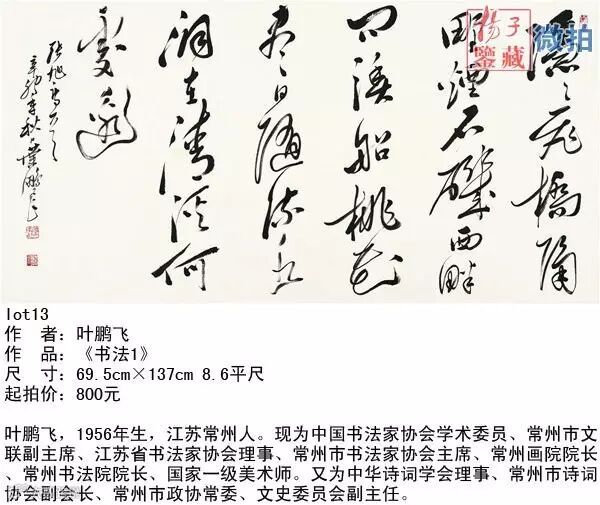 揚子
鑒藏
微拍
隱隱飛橋隔
野煙石磯西畔
問漁船桃花
盡日隨流水
洞在清溪何
處邊
張旭
年秋葉鵬飛
lot13
作 者：叶鹏飞
作 品：《书法1》
尺 寸：69.5cm×137cm 8.6平尺
起拍价：800元
叶鹏飞，1956年生，江苏常州人。现为中国书法家协会学术委员、常州市文
联副主席、江苏省书法家协会理事、常州市书法家协会主席、常州画院院长
、常州书法院院长、国家一级美术师。又为中华诗词学会理事、常州市诗词
协会副会长、常州市政协常委、文史委员会副主任。